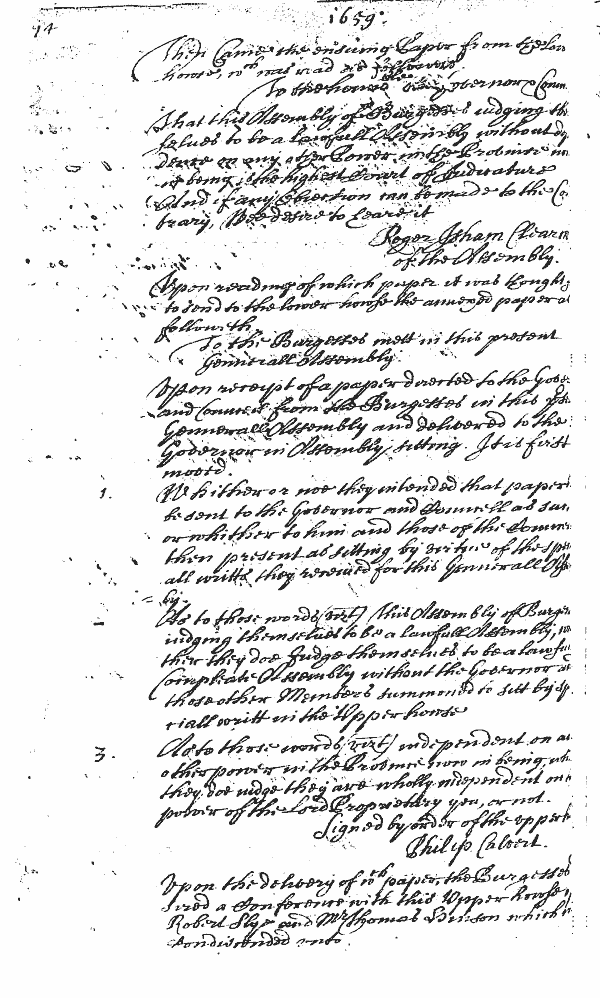 14
1659.
Then Came the ensuing Paper from the Low
howse, wch was read as followeth
To the honoble the Governor & Coun
That this Assembly of Burgesses judging th
selues to be a lawfull Assembly without de
dence on any other Power in the Province
being is the highest Court of Judicature
And if any Obiection can be made to the Co
trary, Wee desire to heare it
Roger Isham Clearn
of the Assembly.
Upon reading of which paper it was thought
to send to the lower howse the annexed paper a
followeth
To the Burgesses mett in this present
Generall Assembly
Upon receipt of a paper directed to the Gove
and Councell from the Burgesses in this
Generall Assembly and delivered to the
Governor in Assembly sitting. It is first
moved.
1. Whither or noe they intended that paper
be sent to the Governor and Councell as suc
or whither to him and those of the Counce
then present as sitting by virtue of the spe
all writts they received for this Generall Ass
by.
As to those words (vizt) this Assembly of Burge
iudging themselues to be a lawfull Assembly,
ther they doe Judge themselues to be a lawfu
Compleate Assembly without the Governor
those other Members summoned to sitt by sp
ciall writt in the Upper howse
3. As to those words (vizt) independent on a
other power in the Province now in being, wh
they doe iudge they are wholly independent on
power of the Lord Proprietary yea, or not.
Signed by order of the upper
Philip Calvert.
Upon the delivery of wch paper, the Burgesses
sired a Conference with this Upper howse,
Robert Slye and Mr Thomas Hinson which
Condiscended unto